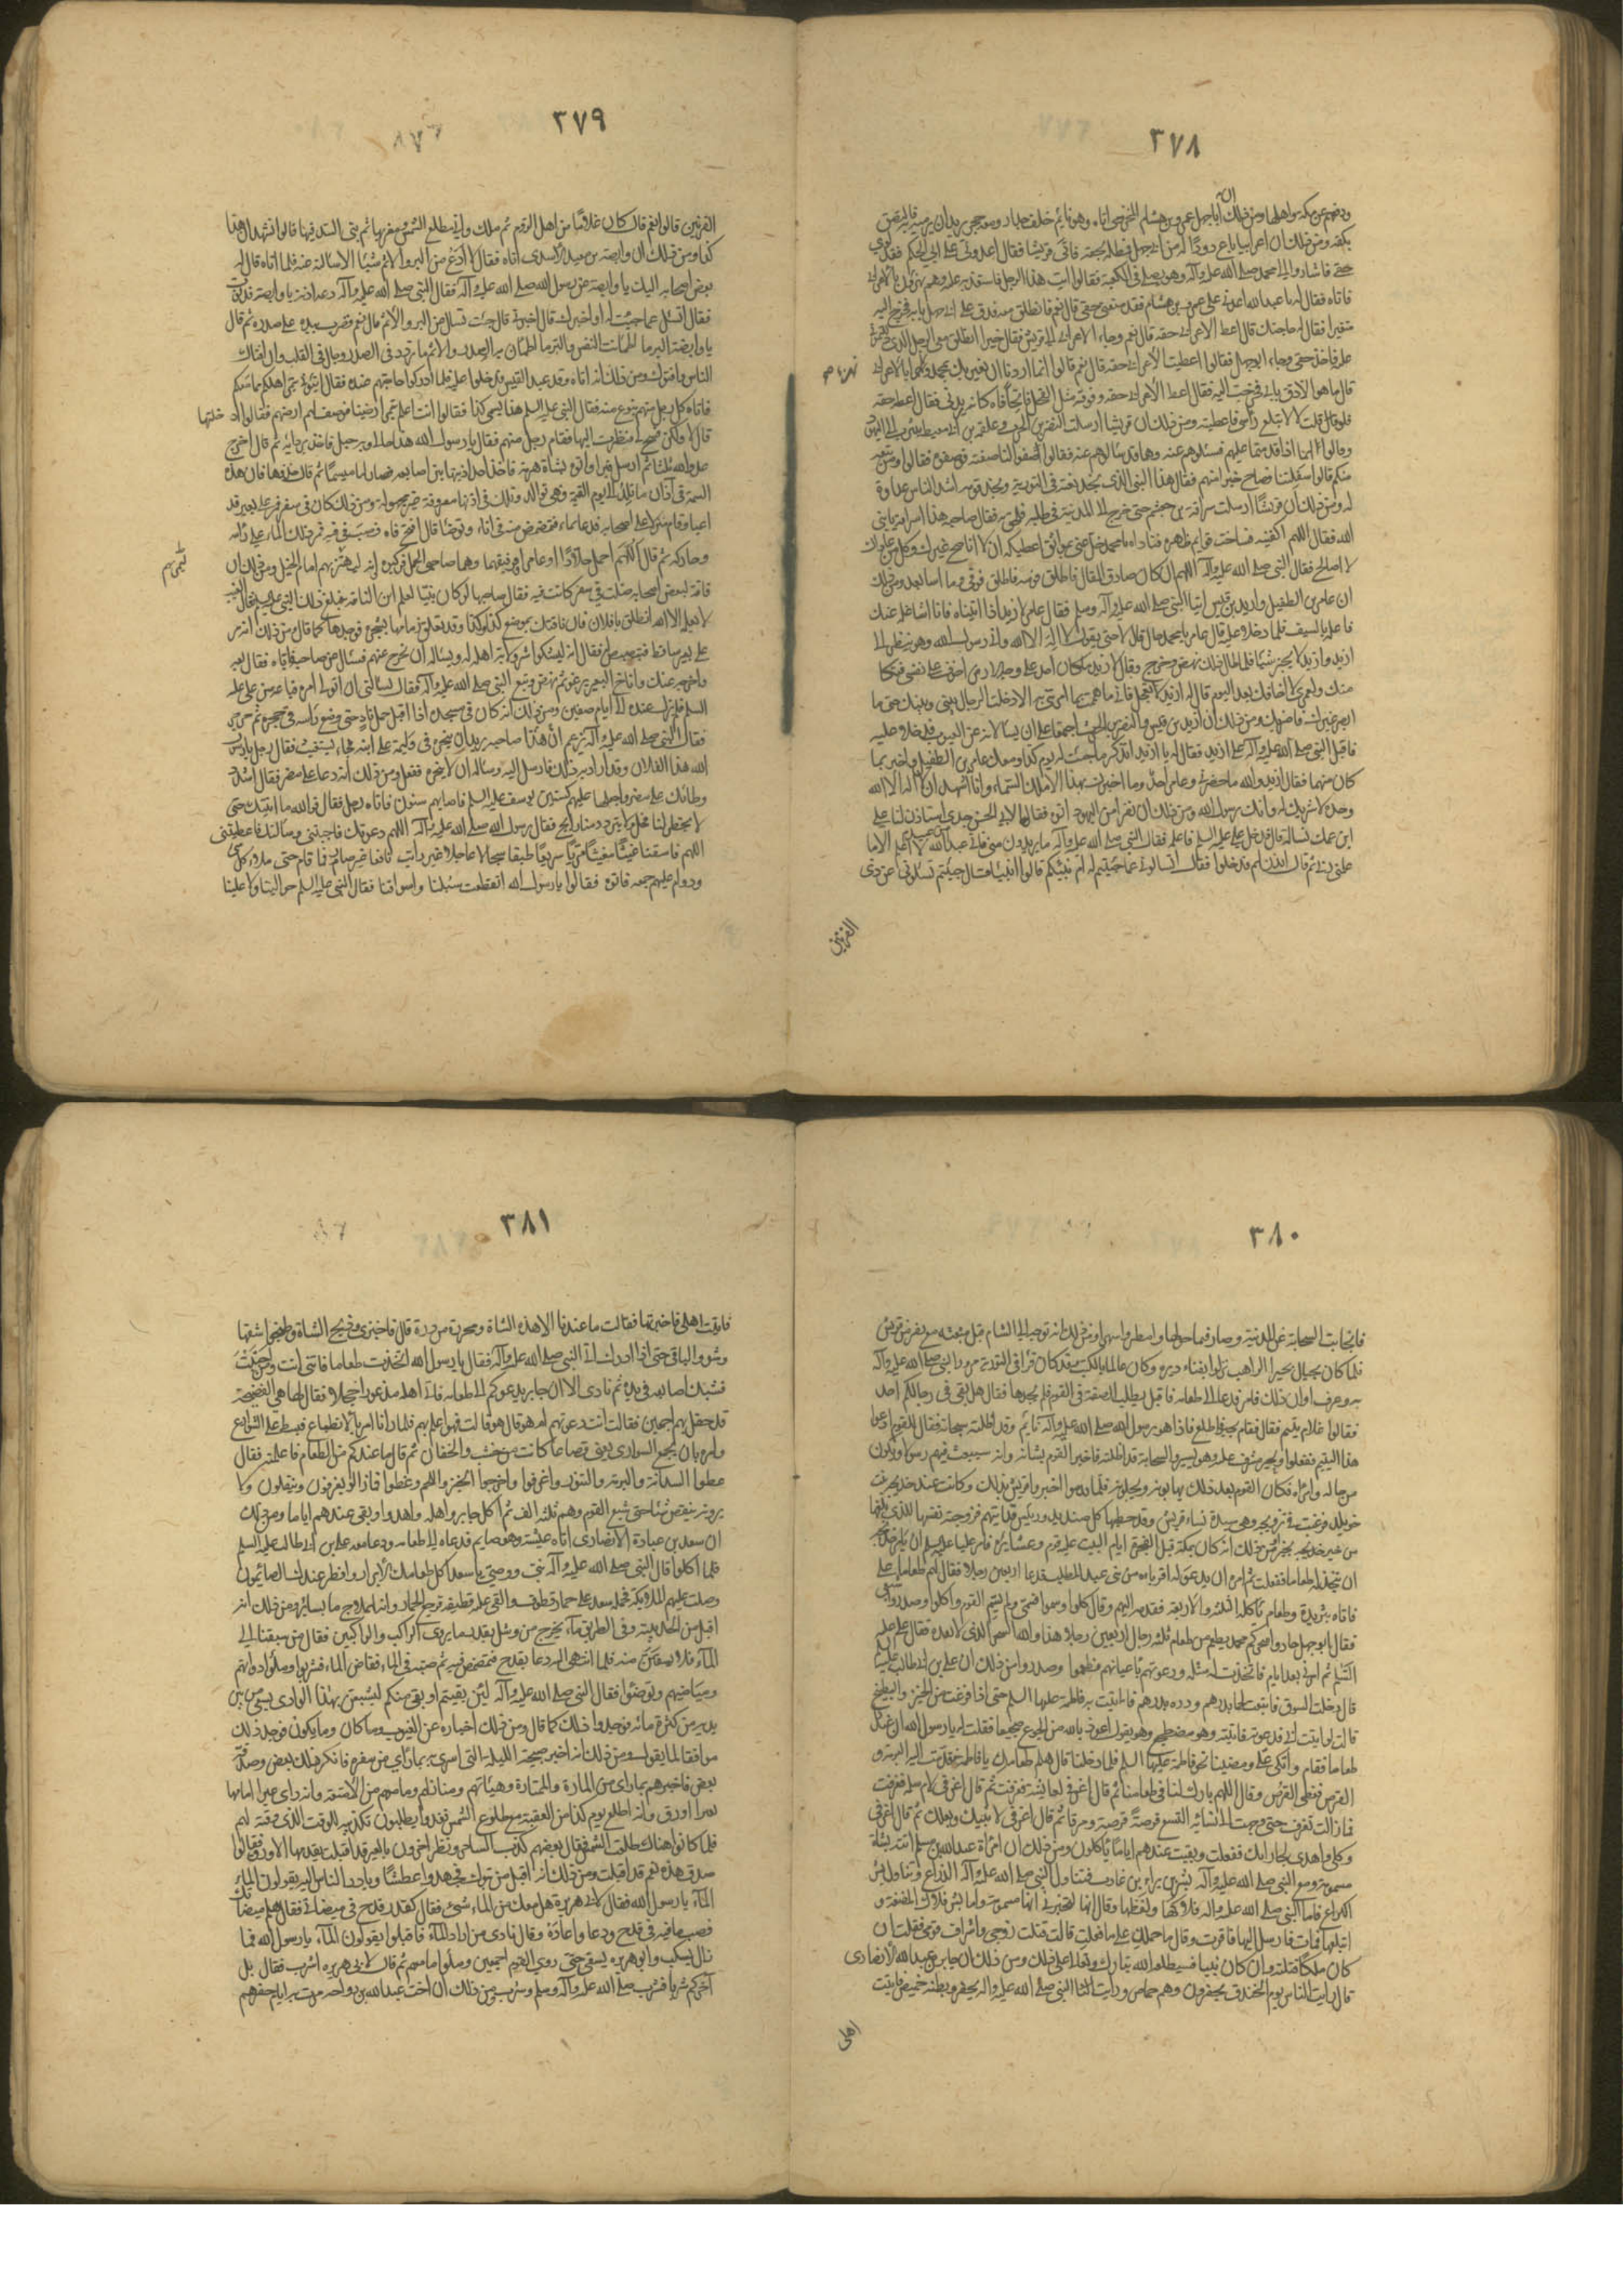 ٣٧٨
بكفه ومن ذلك ان اعرابيا باع ذودا له من ابي جهل فمطله بحقه فاتى قريشا فقال اعدوني على ابي الحكم فقد لوى
حقي فاشاروا الى محمد صلى الله عليه وآله وهو يصلي في الكعبة فقالوا ائت هذا الرجل فاستعد به عليه وهم يهزؤن بالاعرابي
فاتاه فقال له يا عبد الله اعدني على عمرو بن هشام فقد منعني حقي قال نعم فانطلق معه فدق على ابي جهل بابه فخرج اليه
متغيرا فقال له ما حاجتك قال اعط الاعرابي حقه قال نعم وجاء الاعرابي الى قريش فقال جزا الله خيرا انطلق معي الرجل الذي
فاخذ حقي وجاء ابو جهل فقالوا اعطيت الاعرابي حقه قال نعم قالوا انما اردنا ان نغريك بمحمد
قال ما هو الا دق بابي فخرجت اليه فقال اعط الاعرابي حقه وفوقه مثل الفحل فاتحا فاه كانه يريدني فقال اعطه حقه
فلو قلت لا لابتلع راسي فاعطيته ومن ذلك ان قريشا ارسلت النضر بن الحرث وعلقمة بن ابي معيط بيثرب الى اليهود
وقالوا لهما اذا قدمتما عليهم فسئلوهم عنه وهما قد سألوهم عنه فقالوا صفوا لنا صفته فوصفوه فقالوا ومن تبعه
منكم قالوا سفلتنا فصاح حبر منهم فقال هذا النبي الذي نجد نعته في التورية ونجد قومه اشد الناس عداوة
له ومن ذلك ان قريشا ارسلت سراقة بن جعشم حتى خرج الى المدينة في طلبه فلحق به فقال صاحبه هذا سراقة يا نبي
الله فقال اللهم اكفنيه فساخت قوائم ظهره فناداه يا محمد خل عني بموثق اعطيكه ان لا اناصح غيرك وكل من عاداك
لا اصالح فقال النبي صلى الله عليه وآله اللهم ان كان صادق المقال فاطلق فرسه فاطلق فوفى وما انثنى بعد ومن ذلك
ان عامر بن الطفيل واربد بن قيس اتيا النبي صلى الله عليه وآله وسلم فقال عامر لاربد اذا اتيناه فانا اشاغله عنك
فاعله بالسيف فلما دخلا عليه قال عامر يا محمد خال قال لا حتى تقول لا اله الا الله واني رسول الله وهو ينظر الى
اربد واربد لا يحير شيئا فلما طال ذلك نهض وخرج وقال لاربد ما كان احد على وجه الارض اخوف على نفسي فتكا
منك ولعمري لا اخافك بعد اليوم قال له اربد لا تعجل فاني ما هممت بما امرتني به الا دخلت الرجال بيني وبينك حتى ما
ابصر غيرك فاضربك ومن ذلك ان اربد بن قيس والنضر بن الحرث اجتمعا على ان يسالاه عن الغيوب فدخلا عليه
فاقبل النبي صلى الله عليه وآله على اربد فقال له يا اربد اتذكر ما جئت له يوم كذا ومعك عامر بن الطفيل واخبر بما
كان منهما فقال اربد والله ما حضرني وعامر احد وما اخبرك بهذا الا ملك السماء وانا اشهد ان لا اله الا الله
وحده لا شريك له وانك رسول الله ومن ذلك ان نفرا من اليهود اتوه فقالوا لابي الحسن جدي استاذن لنا على
ابن عمك نسأله قال فدخل علي عليه السلم فاعلمه فقال النبي صلى الله عليه وآله ما يريدون مني فاني عبد من عبيد الله لا اعلم الا ما
علمني ربي ثم قال ائذن لهم فدخلوا فقال اتسألوني عما جئتم له ام نبئكم قالوا نبئنا قال جئتم تسئلوني عن ذي
القرنين
٣٧٩
القرنين قالوا نعم قال كان غلاما من اهل الروم ثم ملك واتى مطلع الشمس ومغربها ثم بنى السد فيها قالوا نشهد ان هذا
كذا ومن ذلك ان وابصة بن معبد الاسدي اتاه فقال لا ادع من البر والاثم شيئا الا سالته عنه فلما اتاه قال له
بعض اصحابه اليك يا وابصة عن رسول الله صلى الله عليه وآله فقال النبي صلى الله عليه وآله دعه ادنه يا وابصة فدنوت
فقال اتسئل عما جئت له او اخبرك قال اخبرني قال جئت تسئل عن البر والاثم قال نعم فضرب بيده على صدره ثم قال
يا وابصة البر ما اطمأنت اليه النفس والبر ما اطمأن به الصدر والاثم ما تردد في الصدر وجال في القلب وان افتاك
الناس وافتوك ومن ذلك انه اتاه وفد عبد القيس فدخلوا عليه فلما ادركوا حاجتهم عنده فقال ائتوني بتمر اهلكم مما معكم
فاتاه كل رجل منهم بنوع منه فقال النبي عليه السلم هذا يسمى كذا فقالوا انت اعلم بتمر ارضنا فوصف لهم ارضهم فقالوا ادخلتها
قال لا ولكن فسح لي فنظرت اليها فقام رجل منهم فقال يا رسول الله هذا خالي وبه خبل فاخذ بردائه ثم قال اخرج
عدو الله ثلثا ثم ارسله فبرا واتوه بشاة هرمة فاخذ احد اذنيها بين اصابعه فصار لها ميسما ثم قال خذوها فان هذه
السمة في آذان ما تلد الى يوم القيمة وهي توالد وتلك في اذنها معروفة غير مجهولة ومن ذلك كان في سفر فمر على بعير قد
اعيا وقام منزلا على اصحابه فدعا بماء فتمضمض منه في اناء وتوضا قال افتح فاه فصب في فيه فمر ذلك الماء على راسه
وحاركه ثم قال اللهم احمل خلادا وعامرا ورفيقهما وهما صاحبا الجمل فركبوه وانه ليهتز بهم امام الخيل ومن ذلك ان
ناقة لبعض اصحابه ضلت في سفر كانت فيه فقال صاحبها لو كان نبيا لعلم اين الناقة فبلغ ذلك النبي عليه السلم فقال الغيب
لا يعلمه الا الله انطلق يا فلان فان ناقتك بموضع كذا وكذا وقد تعلق زمامها بشجرة فوجدها كما قال ومن ذلك انه مر
على بعير ساقط فتبصبص له فقال انه ليشكو شر ولاية اهله له ويسأله ان يخرج عنهم فسأل عن صاحبه فاتاه فقال بعه
واخرجه عنك واناخ البعير يرغو ثم نهض وتبع النبي صلى الله عليه وآله فقال يسألني ان اتولى امره فباعه من علي عليه
السلم فلم يزل عنده الى ايام صفين ومن ذلك انه كان في مسجده اذا اقبل جمل ناد حتى وضع راسه في حجره ثم خرخر
فقال النبي صلى الله عليه وآله يزعم ان هذا صاحبه يريد ان ينحره في وليمة على ابنه فجاء يستغيث فقال رجل يا رسول
الله هذا لفلان وقد اراد به ذلك فارسل اليه وسأله ان لا ينحره ففعل ومن ذلك انه دعا على مضر فقال اللهم اشدد
وطأتك على مضر واجعلها عليهم كسنين يوسف عليه السلم فاصابهم سنون فاتاه رجل فقال فوالله ما اتيتك حتى
لا يخطر لنا فحل ولا يتردد منا رائح فقال رسول الله صلى الله عليه وآله اللهم دعوتك فاجبتني وسألتك فاعطيتني
اللهم فاسقنا غيثا مغيثا مريا سريعا طبقا سجالا عاجلا غير رائث نافعا غير ضائر فما قام حتى ملا كل شيء
ودام عليهم جمعة فاتوه فقالوا يا رسول الله انقطعت سبلنا واسواقنا فقال النبي عليه السلم حوالينا ولا علينا
٣٨٠
فانجابت السحابة عن المدينة وصار فيما حولها وامطروا شهرا ومن ذلك انه توجه الى الشام قبل مبعثه مع نفر من قريش
فلما كان بحيال بحيرا الراهب نزلوا بفناء ديره وكان عالما بالكتب وقد كان قرا في التورية مرور النبي صلى الله عليه وآله
به وعرف اوان ذلك فامر فدعا الى طعامه فاقبل يطلب الصفة في القوم فلم يجدها فقال هل بقي في رحالكم احد
فقالوا غلام يتيم فقال فقام بحيرا فاطلع فاذا هو برسول الله صلى الله عليه وآله نائم وقد اظلته سحابة فقال للقوم ادعوا
هذا اليتيم ففعلوا وبحيرا مشرف عليه وهو يسير والسحابة قد اظلته فاخبر القوم بشانه وانه سيبعث فيهم رسولا ويكون
من حاله وامره فكان القوم بعد ذلك يهابونه ويجلونه فلما قدموا اخبروا قريش بذلك وكانت عند خديجة بنت
خويلد فرغبت في تزويجه وهي سيدة نساء قريش وقد خطبها كل صنديد ورئيس قد ابتهم فزوجته نفسها للذي بلغها
من خبر بحيرا ومن ذلك انه كان بمكة قبل الهجرة ايام البت عليه قومه وعشائره فامر عليا عليه السلم ان يامر خديجة
ان تتخذ له طعاما ففعلت ثم امره ان يدعو له اقرباءه من بني عبد المطلب فدعا اربعين رجلا فقال لهم طعاما يا علي
فاتاه بثريدة وطعام ياكله الثلثة والاربعة فقدمه اليهم وقال كلوا وسموا فسمى ولم يسم القوم واكلوا وصدروا شبعى
فقال ابو جهل جاد ما سحركم محمد يطعم من طعام ثلثة رجال اربعين رجلا هذا والله السحر الذي لا بعده فقال علي عليه
السلم ثم امرني بعد ايام فاتخذت له مثله ودعوتهم باعيانهم فطعموا وصدروا ومن ذلك ان علي بن ابي طالب عليه السلم
قال دخلت السوق فابتعت لحما بدرهم وذرة بدرهم فاتيت به فاطمة عليها السلم حتى اذا فرغت من الخبز والطبخ
قالت لو اتيت ابي فدعوته فاتيته وهو مضطجع وهو يقول اعوذ بالله من الجوع ضجيعا فقلت له يا رسول الله ان عندنا
طعاما فقام واتكى علي ومضينا نحو فاطمة عليها السلم فلما دخلنا قال هلم طعامك يا فاطمة فقدمت اليه البرمة و
القرص فغطى القرص وقال اللهم بارك لنا في طعامنا ثم قال اغرفي لعايشة فغرفت ثم قال اغرفي لام سلمة فغرفت
فما زالت تغرف حتى وجهت الى نسائه التسع قرصة قرصة ومرقا ثم قال اغرفي لابنيك وبعلك ثم قال اغرفي
وكلي واهدي لجاراتك ففعلت وبقيت عندهم اياما ياكلون ومن ذلك ان امراة عبد الله بن مسلم اتته بشاة
مسمومة ومع النبي صلى الله عليه وآله بشر بن براء بن عازب فتناول النبي صلى الله عليه وآله الذراع وتناول بشر
الكراع فاما النبي صلى الله عليه وآله فلاكها ولفظها وقال انها لتخبرني انها مسمومة واما بشر فلاك المضغة و
ابتلعها فمات فارسل اليها فاقرت وقال ما حملك على ما فعلت قالت قتلت زوجي واشراف قومي فقلت ان
كان ملكا قتلته وان كان نبيا فسيطلعه الله تبارك وتعالى على ذلك ومن ذلك ان جابر بن عبد الله الانصاري
قال رايت الناس يوم الخندق يحفرون وهم خماص ورايت النبي صلى الله عليه وآله يحفر وبطنه خميص فاتيت
اهلي
٣٨١
فاتيت اهلي فاخبرتها فقالت ما عندنا الا هذه الشاة ومحرز من ذرة قال فاخبزي وذبح الشاة وطبخوا شقها
وشووا الباقي حتى اذا ادرك اتى النبي صلى الله عليه وآله فقال يا رسول الله اتخذت طعاما فائتني انت ومن احببت
فشبك اصابعه في يده ثم نادى الا ان جابر يدعوكم الى طعامه فاتى اهله مذعورا خجلا فقال لها هي الفضيحة
قد حفل بهم اجمعين فقالت انت دعوتهم ام هو قال هو قالت فهو اعلم بهم فلما رآنا امر بالانطاع فبسطت على الشوارع
وامره بان يجمع السواري يعني قصاعا كانت من خشب والجفان ثم قال ما عندكم من الطعام فاعلمته فقال
غطوا السدانة والبرمة والتنور واغرفوا واخرجوا الخبز واللحم وغطوا فما زالوا يغرفون وينقلون ولا
يرونه ينقص شيئا حتى شبع القوم وهم ثلثة الف ثم اكل جابر واهله واهدوا وبقي عندهم اياما ومن ذلك
ان سعد بن عبادة الانصاري اتاه عشية وهو صايم فدعاه الى طعامه ودعا معه علي بن ابي طالب عليه السلم
فلما اكلوا قال النبي صلى الله عليه وآله نبي ووصي يا سعد اكل طعامك الابرار وافطر عندك الصائمون
وصلت عليهم الملائكة فحمله سعد على حمار قطوف والقى عليه قطيفة فرجع الحمار وانه لهملاج ما يساير ومن ذلك انه
اقبل من الحديبية وفي الطريق ماء يخرج من وشل بقدر ما يروى الراكب والراكبين فقال من سبقنا الى
الماء فلا يستقين منه فلما انتهى اليه دعا بقدح فتمضمض فيه ثم صبه في الماء ففاض الماء فشربوا وملؤا ادواتهم
ومياضيهم وتوضئوا فقال النبي صلى الله عليه وآله لئن بقيتم او بقي منكم ليسمعن بهذا الوادي يسقي ما بين
يديه من كثرة مائه فوجدوا ذلك كما قال ومن ذلك اخباره عن الغيوب وما كان وما يكون فوجد ذلك
موافقا لما يقول ومن ذلك انه اخبر صبيحة الليلة التي اسري به بما راى من سفره فانكر ذلك بعض وصدقه
بعض فاخبرهم بما راى من المارة والممتارة وهيئاتهم ومنازلهم وما معهم من الامتعة وانه راى عيرا امامها
بعير اورق وانه اطلع يوم كذا من العقبة مع طلوع الشمس فغدوا يطلبون تكذيبه للوقت الذي وقته لهم
فلما كانوا هناك طلعت الشمس فقال بعضهم كذب الساحر ونظر آخرون بالعير قد اقبلت يقدمها الاورق فقالوا
صدق هذه نعم قد اقبلت ومن ذلك انه اقبل من تبوك فجهدوا عطشا وبادر الناس اليه يقولون الماء
الماء يا رسول الله فقال لابي هريرة هل معك من الماء شيء فقال كقدر قدح في ميضاتي فقال هلم ميضأتك
فصب ما فيه في قدح ودعا واعاده وقال نادى من اراد الماء فاقبلوا يقولون الماء يا رسول الله فما
زال يسكب وابو هريره يسقي حتى روي القوم اجمعين وملؤا ما معهم ثم قال لابي هريره اشرب فقال بل
آخركم شربا فشرب صلى الله عليه وآله وسلم وشرب ومن ذلك ان اخت عبد الله بن رواحة مرت به ايام حفرهم